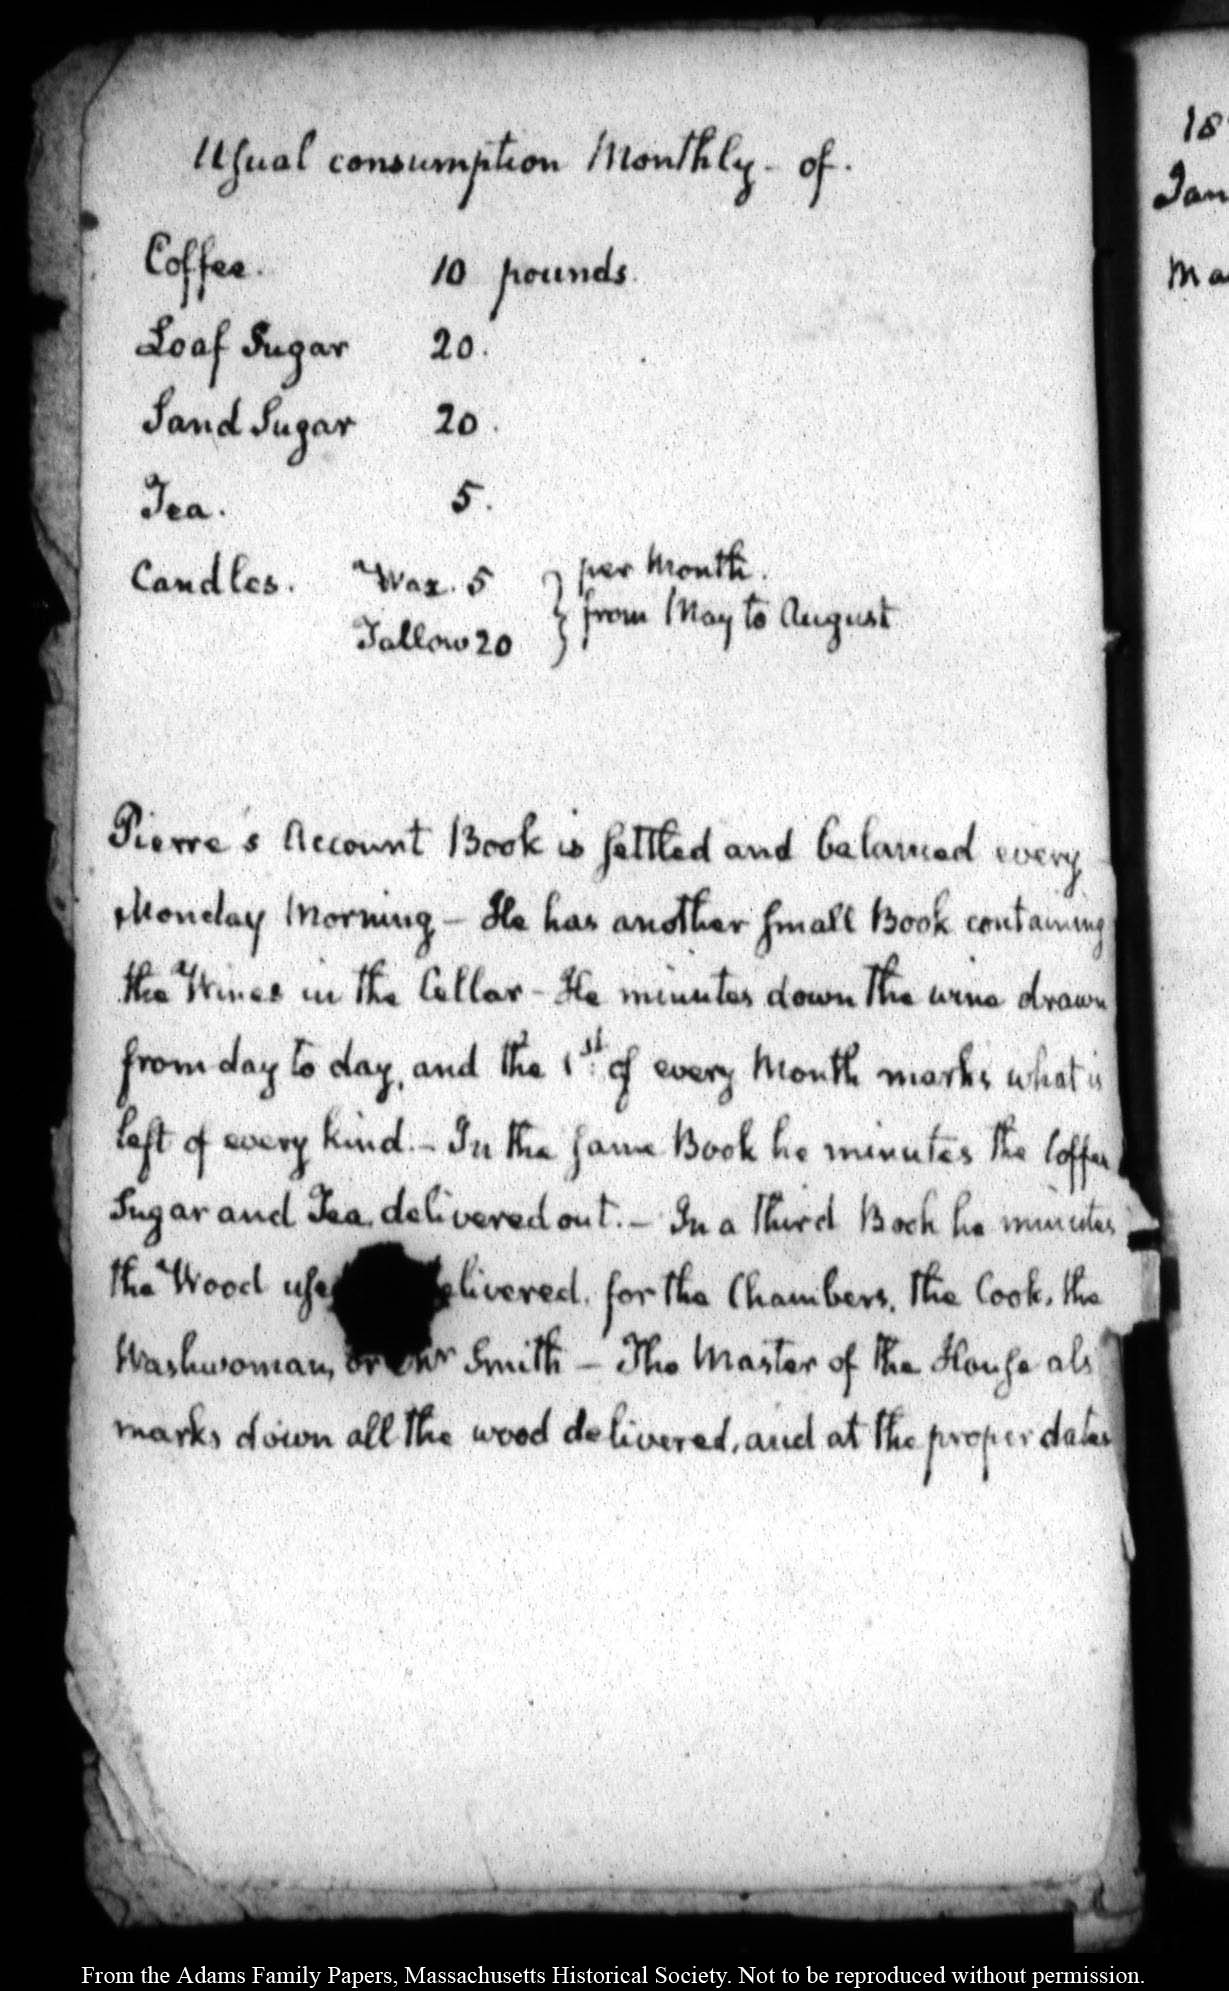 Usual consumption Monthly - of.
Coffee. 10 pounds.
Loaf Sugar 20.
Sand Sugar 20.
Tea. 5.
Candles. Wax. 5 } per Month.
Tallow 20 } from May to August
Pierre's Account Book is settled and balanced every
Monday Morning - He has another small Book containing
the Wines in the Cellar - He minutes down the wine drawn
from day to day, and the 1st. of every Month marks what is
left of every kind. - In the same Book he minutes the Coffee
Sugar and Tea delivered out. - In a third Book he minutes
the Wood use elivered, for the Chambers, the Cook, the
Washwoman, or Mr Smith - The Master of the House als
marks down all the wood delivered, and at the proper dates
18
Jan
Ma
From the Adams Family Papers, Massachusetts Historical Society. Not to be reproduced without permission.